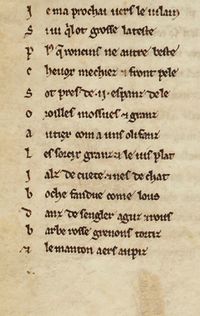 J e maprochai uers le uilain
S i ui qͥl ot grosse la teste
P lꝰ q̃ roncins ne autre beste
C heuox mechiez ⁊ front pele
S ot pres de .ii. espanz de le
O roilles mossues ⁊ granz
A utiex com a uns olifanz
L es sorcix granz ⁊ le uis plat
I alz de cuete ⁊ nes de chat
B oche fandue come lous
D anz de sengler aguz ⁊ rous
B arbe rosse grenons tortiz
⁊ le manton aers au piz